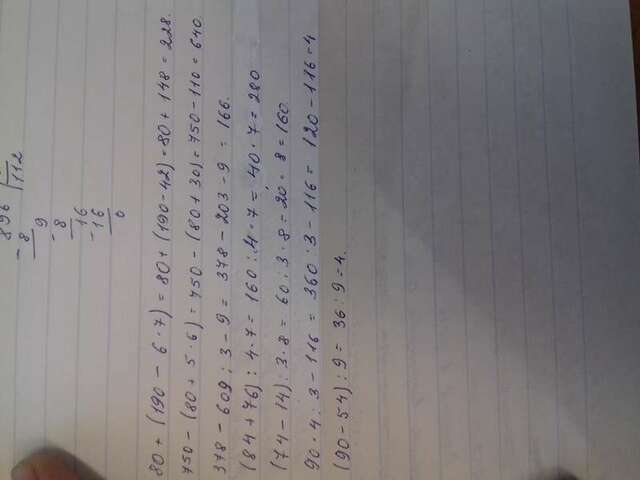 896
112
- 8
9
- 8
16
- 16
0
80 + (190 - 6 · 7) = 80 + (190 - 42) = 80 + 148 = 228.
750 - (80 + 5 · 6) = 750 - (80 + 30) = 750 - 110 = 640.
378 - 609 : 3 - 9 = 378 - 203 - 9 = 166.
(84 + 76) : 4 · 7 = 160 : 4 · 7 = 40 · 7 = 280
(74 - 14) : 3 · 8 = 60 : 3 · 8 = 20 · 8 = 160.
90 · 4 : 3 - 116 = 360 : 3 - 116 = 120 - 116 = 4
(90 - 54) : 9 = 36 : 9 = 4.